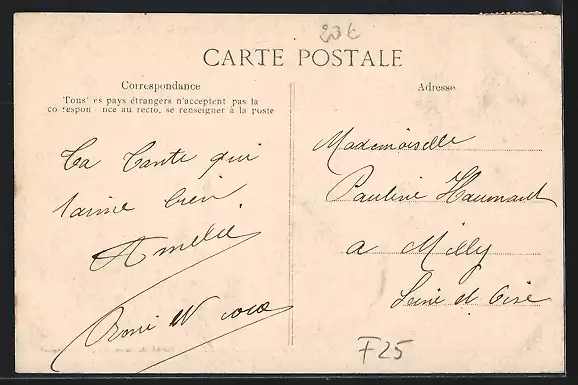 20€
CARTE POSTALE
Correspondance
Tous les pays étrangers n'acceptent pas la
correspondance au recto, se renseigner à la poste
Ta tante qui
t'aime bien
Amélie
Adresse
Mademoiselle
Pauline Haumant
a Milly
Seine et Oise
F25